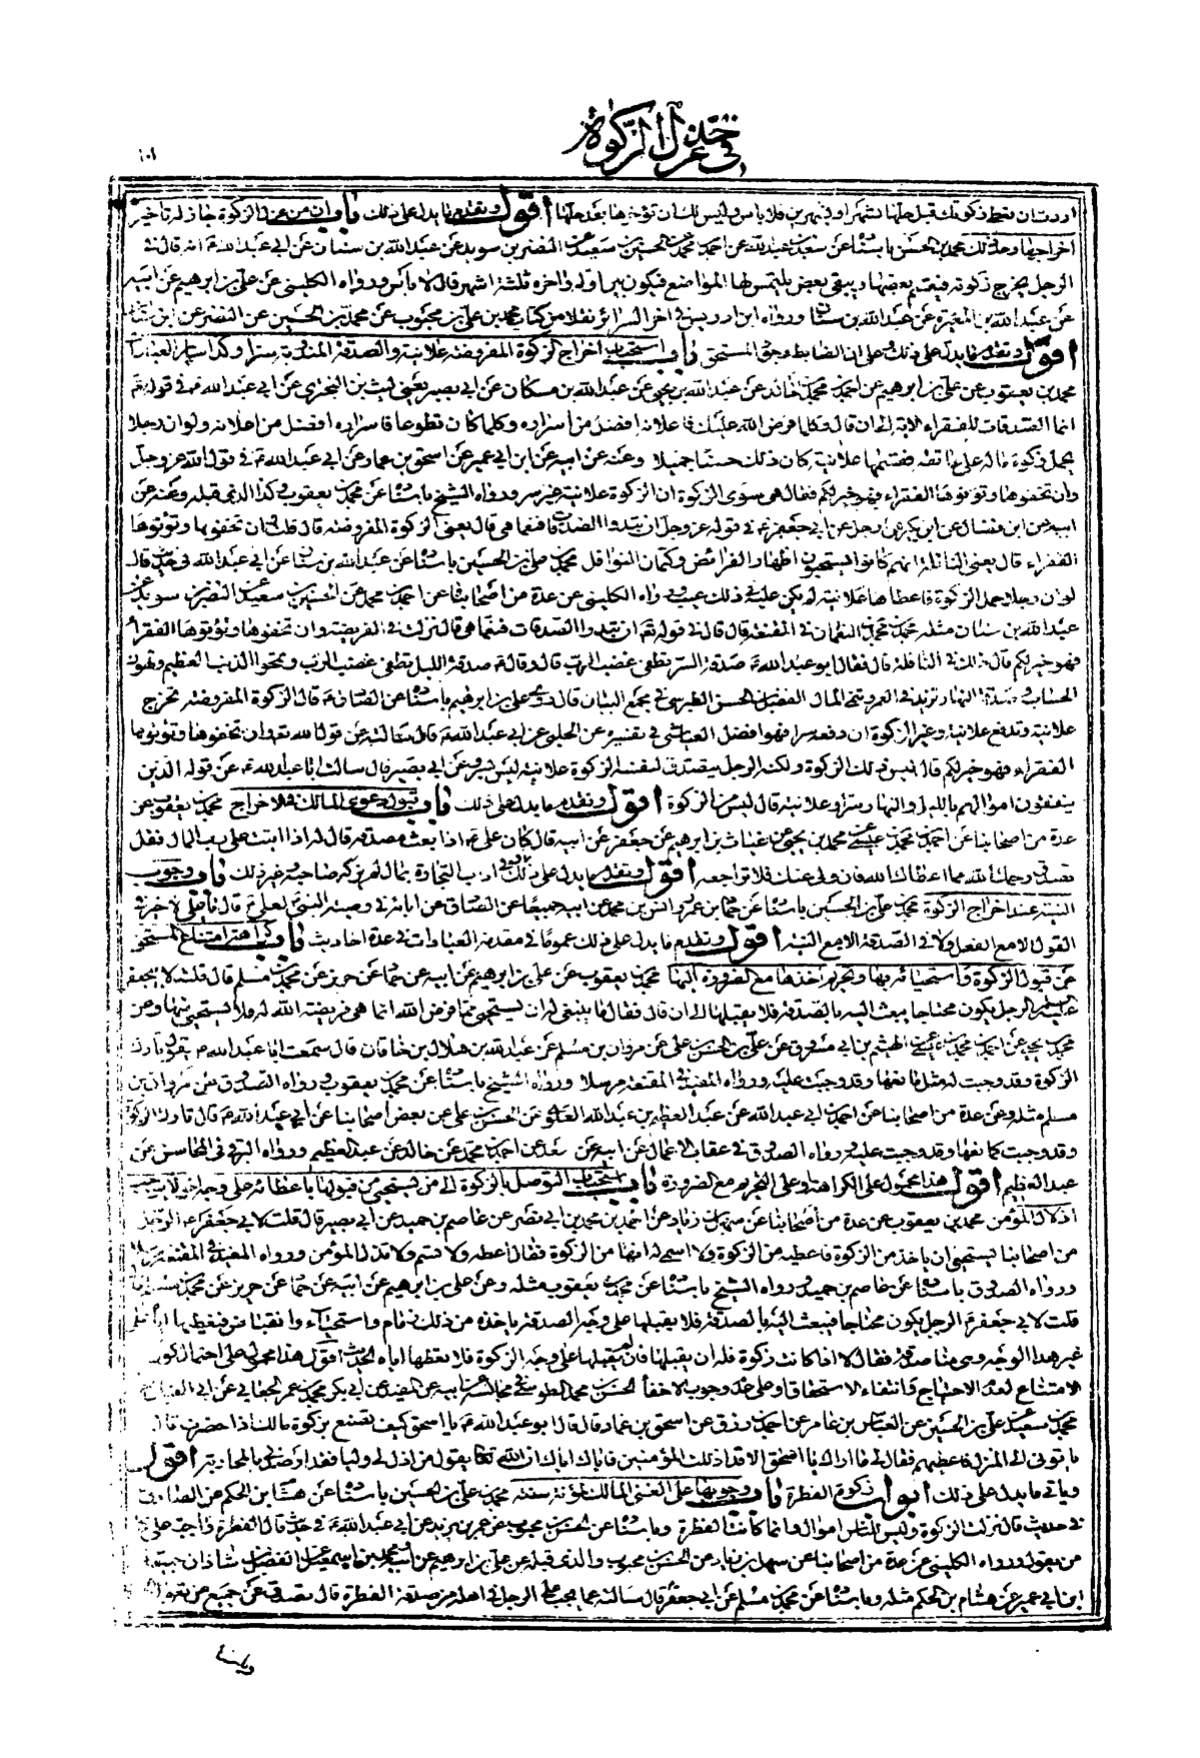 في عزل الزكوة
١٠١
اردت ان تعطي زكوتك قبل حلها بشهر او شهرين فلا باس وليس لك ان تؤخرها بعد حلها اقول وتقدم ما يدل على ذلك باب ان من عزل الزكوة جاز له تاخير
اخراجها محمد بن الحسن باسناده عن سعد بن عبد الله عن احمد بن محمد عن الحسين بن سعيد عن النضر بن سويد عن عبد الله بن سنان عن ابي عبد الله ع انه قال في
الرجل يخرج زكوته فيقسم بعضها ويبقى بعض يلتمس لها المواضع فيكون بين اوله واخره ثلثة اشهر قال لا باس ورواه الكليني عن علي بن ابرهيم عن ابيه
عن عبد الله بن المغيرة عن عبد الله بن سنان ورواه ابن ادريس في اخر السرائر نقلا من كتاب محمد بن علي بن محبوب عن محمد بن الحسين عن النضر عن ابن سنان
اقول وتقدم ما يدل على ذلك وعلى ان الضابط وجود المستحق باب استحباب اخراج الزكوة المفروضة علانية والصدقة المندوبة سرا وكذا سائر العبادات
محمد بن يعقوب عن علي بن ابرهيم عن احمد بن محمد بن خالد عن عبد الله بن يحيى عن عبد الله بن مسكان عن ابي بصير يعني ليث بن البختري عن ابي عبد الله ع في قوله تعالى
انما الصدقات للفقراء الاية الى ان قال وكلما فرض الله عليك فاعلانه افضل من اسراره وكلما كان تطوعا فاسراره افضل من اعلانه ولو ان رجلا
يحمل زكوة ماله على عاتقه فقسمها علانية كان ذلك حسنا جميلا وعنه عن ابيه عن ابن ابي عمير عن اسحق بن عمار عن ابي عبد الله ع في قول الله عز وجل
وان تخفوها وتؤتوها الفقراء فهو خير لكم فقال هي سوى الزكوة ان الزكوة علانية غير سر ورواه الشيخ باسناده عن محمد بن يعقوب وكذا الذي قبله وعنه عن
ابيه عن ابن فضال عن ابن بكير عن رجل عن ابي جعفر ع في قوله عز وجل ان تبدوا الصدقات فنعما هي قال يعني الزكوة المفروضة قال قلت ان تخفوها وتؤتوها
الفقراء قال يعني النافلة انهم كانوا يستحبون اظهار الفرائض وكتمان النوافل محمد بن علي بن الحسين باسناده عن عبد الله بن سنان عن ابي عبد الله في حديث قال
لو ان رجلا حمل الزكوة فاعطاها علانية لم يكن عليه في ذلك عيب ورواه الكليني عن عدة من اصحابنا عن احمد بن محمد عن الحسين بن سعيد عن النضر بن سويد عن
عبد الله بن سنان مثله محمد بن محمد بن النعمان في المقنعة قال قال في قوله تعالى ان تبدوا الصدقات فنعما هي قال نزلت في الفريضة وان تخفوها وتؤتوها الفقراء
فهو خير لكم قال ذلك في النافلة قال فقال ابو عبد الله ع صدقة السر تطفئ غضب الرب قال وقال ع صدقة الليل تطفئ غضب الرب وتمحو الذنب العظيم وتهون
الحساب وصدقة النهار تزيد في العمر وتثمر المال الفضل بن الحسن الطبرسي في مجمع البيان قال روى علي بن ابرهيم باسناده عن الصادق ع قال الزكوة المفروضة تخرج
علانية وتدفع علانية وغير الزكوة ان دفعه سرا فهو افضل العياشي في تفسيره عن الحلبي عن ابي عبد الله ع قال سالته عن قول الله تعالى وان تخفوها وتؤتوها
الفقراء فهو خير لكم قال ليس تلك الزكوة ولكنه الرجل يتصدق لنفسه الزكوة علانية ليس بسر وعن ابي بصير قال سالت ابا عبد الله ع عن قوله الذين
ينفقون اموالهم بالليل والنهار سرا وعلانية قال ليس من الزكوة اقول وتقدم ما يدل على ذلك باب قبول دعوى المالك في الاخراج محمد بن يعقوب عن
عدة من اصحابنا عن احمد بن محمد بن عيسى عن محمد بن يحيى عن غياث بن ابرهيم عن جعفر عن ابيه قال كان علي ع اذا بعث مصدقه قال له اذا اتيت على رب المال فقل
تصدق رحمك الله مما اعطاك الله فان ولى عنك فلا تراجعه اقول وتقدم ما يدل على ذلك وفي ادب التجارة بمال لم يزكه صاحبه وغير ذلك باب وجوب
النية عند اخراج الزكوة محمد بن علي بن الحسين باسناده عن حماد بن عمرو وانس بن محمد عن ابيه جميعا عن الصادق عن ابائه في وصية النبي لعلي ع قال يا علي لا خير في
القول الا مع الفعل ولا في الصدقة الا مع النية اقول وتقدم ما يدل على ذلك عموما في مقدمة العبادات في عدة احاديث باب كراهة امتناع المستحق
عن قبول الزكوة واستحيائه منها وتحريم اخذها مع الضرورة اليها محمد بن يعقوب عن علي بن ابرهيم عن ابيه عن حماد عن حريز عن محمد بن مسلم قال قلت لابي جعفر
عليه السلام الرجل يكون محتاجا يبعث اليه بالصدقة فلا يقبلها الى ان قال فقال ما ينبغي له ان يستحيي مما فرض الله انما هي فريضة الله له فلا يستحيي منها وعن
محمد بن يحيى عن احمد بن محمد بن عيسى عن الهيثم بن ابي مسروق عن علي بن الحسن بن علي عن مروان بن مسلم عن عبد الله بن هلال بن خاقان قال سمعت ابا عبد الله ع يقول تارك
الزكوة وقد وجبت له مثل مانعها وقد وجبت عليه ورواه المفيد في المقنعة مرسلا ورواه الشيخ باسناده عن محمد بن يعقوب ورواه الصدوق عن مروان بن
مسلم مثله وعن عدة من اصحابنا عن احمد بن ابي عبد الله عن عبد العظيم بن عبد الله العلوي عن الحسن بن علي عن بعض اصحابنا عن ابي عبد الله ع قال تارك الزكوة
وقد وجبت كمانعها وقد وجبت عليه ورواه الصدوق في عقاب الاعمال عن ابيه عن سعد عن احمد بن محمد عن خالد عن عبد العظيم ورواه البرقي في المحاسن عن
عبد العظيم اقول هذا محمول على الكراهة وعلى التحريم مع الضرورة باب استحباب التوصل بالزكوة الى من يستحيي من قبولها باعطائه على وجه اخر لا يوجب
اذلال المؤمن محمد بن يعقوب عن عدة من اصحابنا عن سهل بن زياد عن احمد بن محمد بن ابي نصر عن عاصم بن حميد عن ابي بصير قال قلت لابي جعفر ع الرجل
من اصحابنا يستحيي ان ياخذ من الزكوة فاعطيه من الزكوة ولا اسمي له انها من الزكوة فقال اعطه ولا تسم ولا تذل المؤمن ورواه المفيد في المقنعة
ورواه الصدوق باسناده عن عاصم بن حميد ورواه الشيخ باسناده عن محمد بن يعقوب مثله وعن علي بن ابرهيم عن ابيه عن حماد عن حريز عن محمد بن مسلم قال
قلت لابي جعفر ع الرجل يكون محتاجا فيبعث اليه بالصدقة فلا يقبلها على وجه الصدقة ياخذه من ذلك ذمام واستحياء وانقباض فيعطيها اياه على
غير هذا الوجه وهي منا صدقة فقال لا اذا كانت زكوة فله ان يقبلها فان لم يقبلها على وجه الزكوة فلا تعطها اياه الحديث اقول هذا محمول على احتمال كون
الامتناع لعدم الاحتياج وانتفاء الاستحقاق او على عدم وجوب الاخفاء الحسن بن محمد الطوسي في مجالسه عن ابيه عن المفيد عن ابي بكر محمد بن عمر الجعابي عن ابي العباس
محمد بن سعيد عن علي بن الحسين عن العباس بن عامر عن احمد بن رزق عن اسحق بن عمار قال قال ابو عبد الله ع يا اسحق كيف تصنع بزكوة مالك اذا حضرت قال
ياتوني الى المنزل فاعطيهم فقال لي ما اراك يا اسحق الا قد اذللت المؤمنين فاياك اياك ان الله تعالى يقول من اذل لي وليا فقد ارصد لي بالمحاربة اقول
وياتي ما يدل على ذلك ابواب زكوة الفطرة باب وجوبها على الغني المالك لمؤنة سنته محمد بن علي بن الحسين باسناده عن هشام بن الحكم عن الصادق ع
في حديث قال نزلت الزكوة وليس للناس اموال وانما كانت الفطرة وباسناده عن الحسن بن محبوب عن عمر بن يزيد عن ابي عبد الله ع في حديث قال الفطرة واجبة على كل
من يعول ورواه الكليني عن عدة من اصحابنا عن سهل بن زياد عن الحسن بن محبوب والذي قبله عن علي بن ابرهيم عن ابيه ومحمد بن اسمعيل عن الفضل بن شاذان جميعا عن
ابن ابي عمير عن هشام بن الحكم مثله وباسناده عن محمد بن مسلم عن ابي جعفر قال سالته عما يجب على الرجل في اهله من صدقة الفطرة قال تصدق عن جميع من تعول